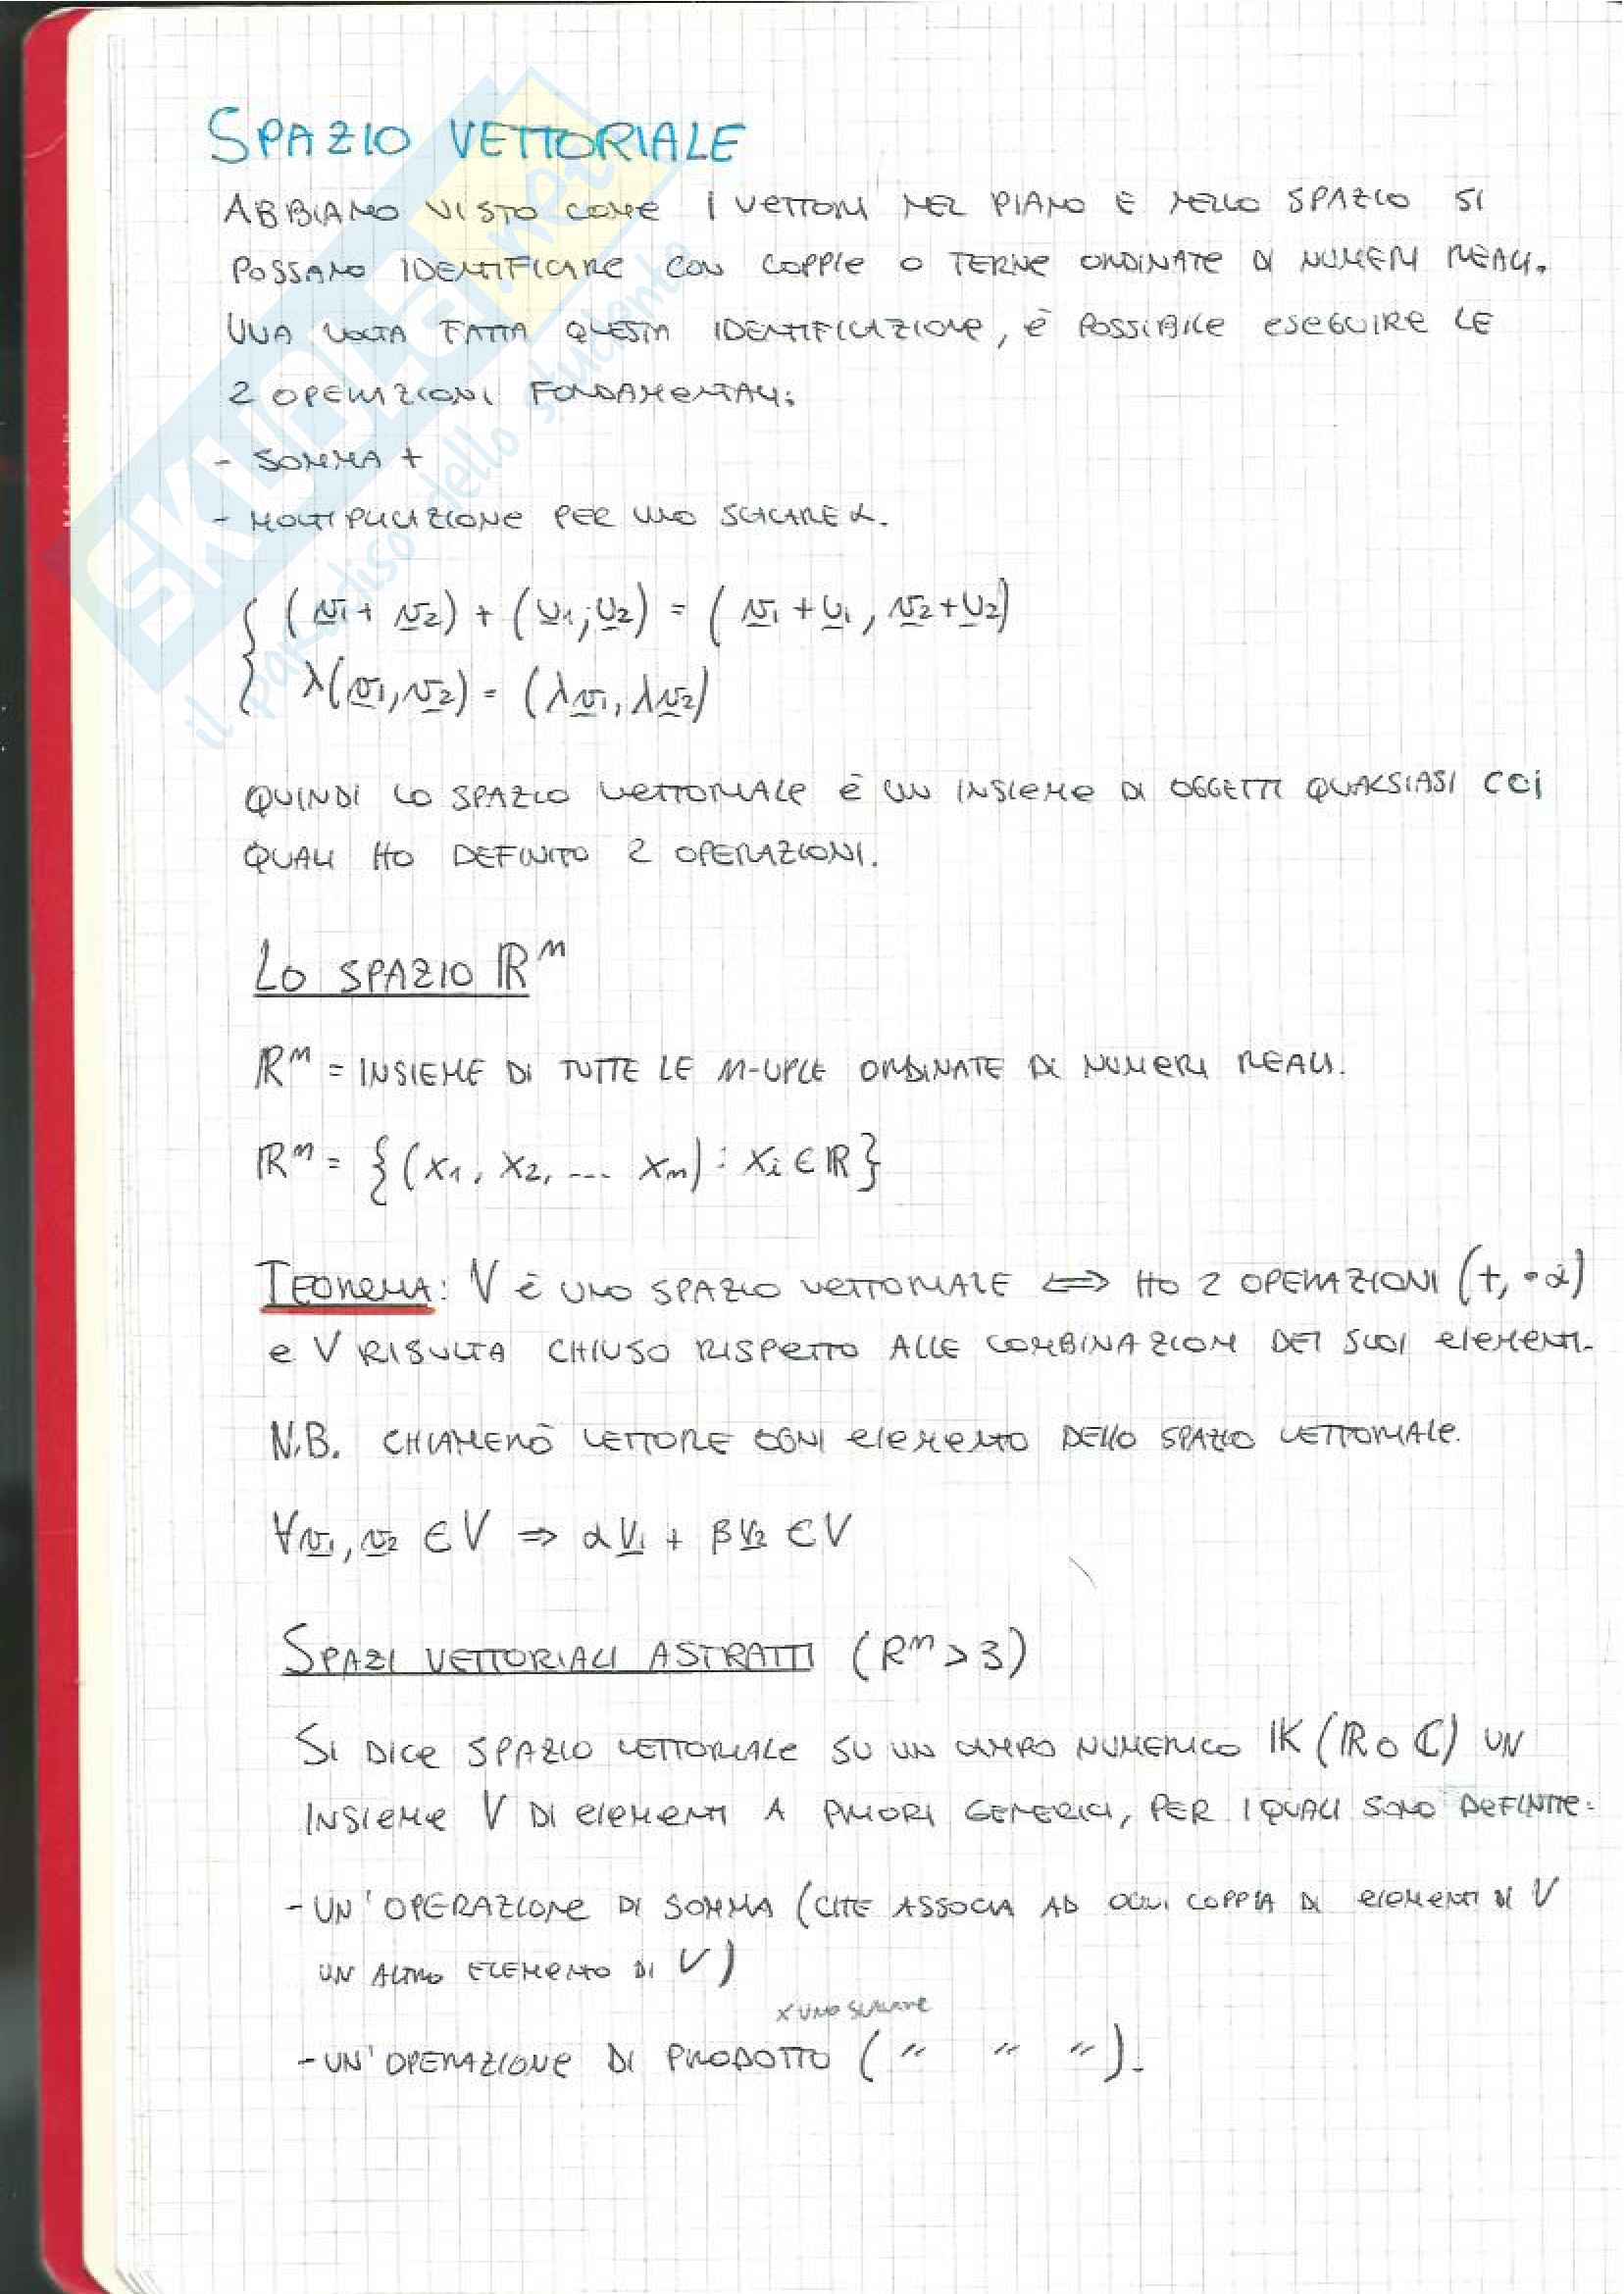 SPAZIO VETTORIALE
ABBIAMO VISTO COME I VETTORI NEL PIANO E NELLO SPAZIO SI
POSSANO IDENTIFICARE CON COPPIE O TERNE ORDINATE DI NUMERI REALI.
UNA VOLTA FATTA QUESTA IDENTIFICAZIONE, È POSSIBILE ESEGUIRE LE
2 OPERAZIONI FONDAMENTALI:
- SOMMA +
- MOLTIPLICAZIONE PER UNO SCALARE α.
{ (v1 + v2) + (u1; u2) = (v1 + u1, v2 + u2)
λ(v1, v2) = (λv1, λv2)
QUINDI LO SPAZIO VETTORIALE È UN INSIEME DI OGGETTI QUALSIASI COI
QUALI HO DEFINITO 2 OPERAZIONI.
LO SPAZIO ℝⁿ
ℝⁿ = INSIEME DI TUTTE LE N-UPLE ORDINATE DI NUMERI REALI.
ℝⁿ = {(x1, x2, ... xn) : xi ∈ ℝ}
TEOREMA: V È UNO SPAZIO VETTORIALE ⟺ HO 2 OPERAZIONI (+, •α)
E V RISULTA CHIUSO RISPETTO ALLE COMBINAZIONI DEI SUOI ELEMENTI.
N.B. CHIAMERÒ VETTORE OGNI ELEMENTO DELLO SPAZIO VETTORIALE.
∀v1, v2 ∈ V ⇒ αv1 + βv2 ∈ V
SPAZI VETTORIALI ASTRATTI (Rⁿ > 3)
SI DICE SPAZIO VETTORIALE SU UN CAMPO NUMERICO 𝕂 (ℝ O ℂ) UN
INSIEME V DI ELEMENTI A PRIORI GENERICI, PER I QUALI SONO DEFINITE:
- UN'OPERAZIONE DI SOMMA (CHE ASSOCIA AD OGNI COPPIA DI ELEMENTI DI V
UN ALTRO ELEMENTO DI V)
X UNO SCALARE
- UN'OPERAZIONE DI PRODOTTO (" " ").
SKUOLA.net
il paradiso dello studente